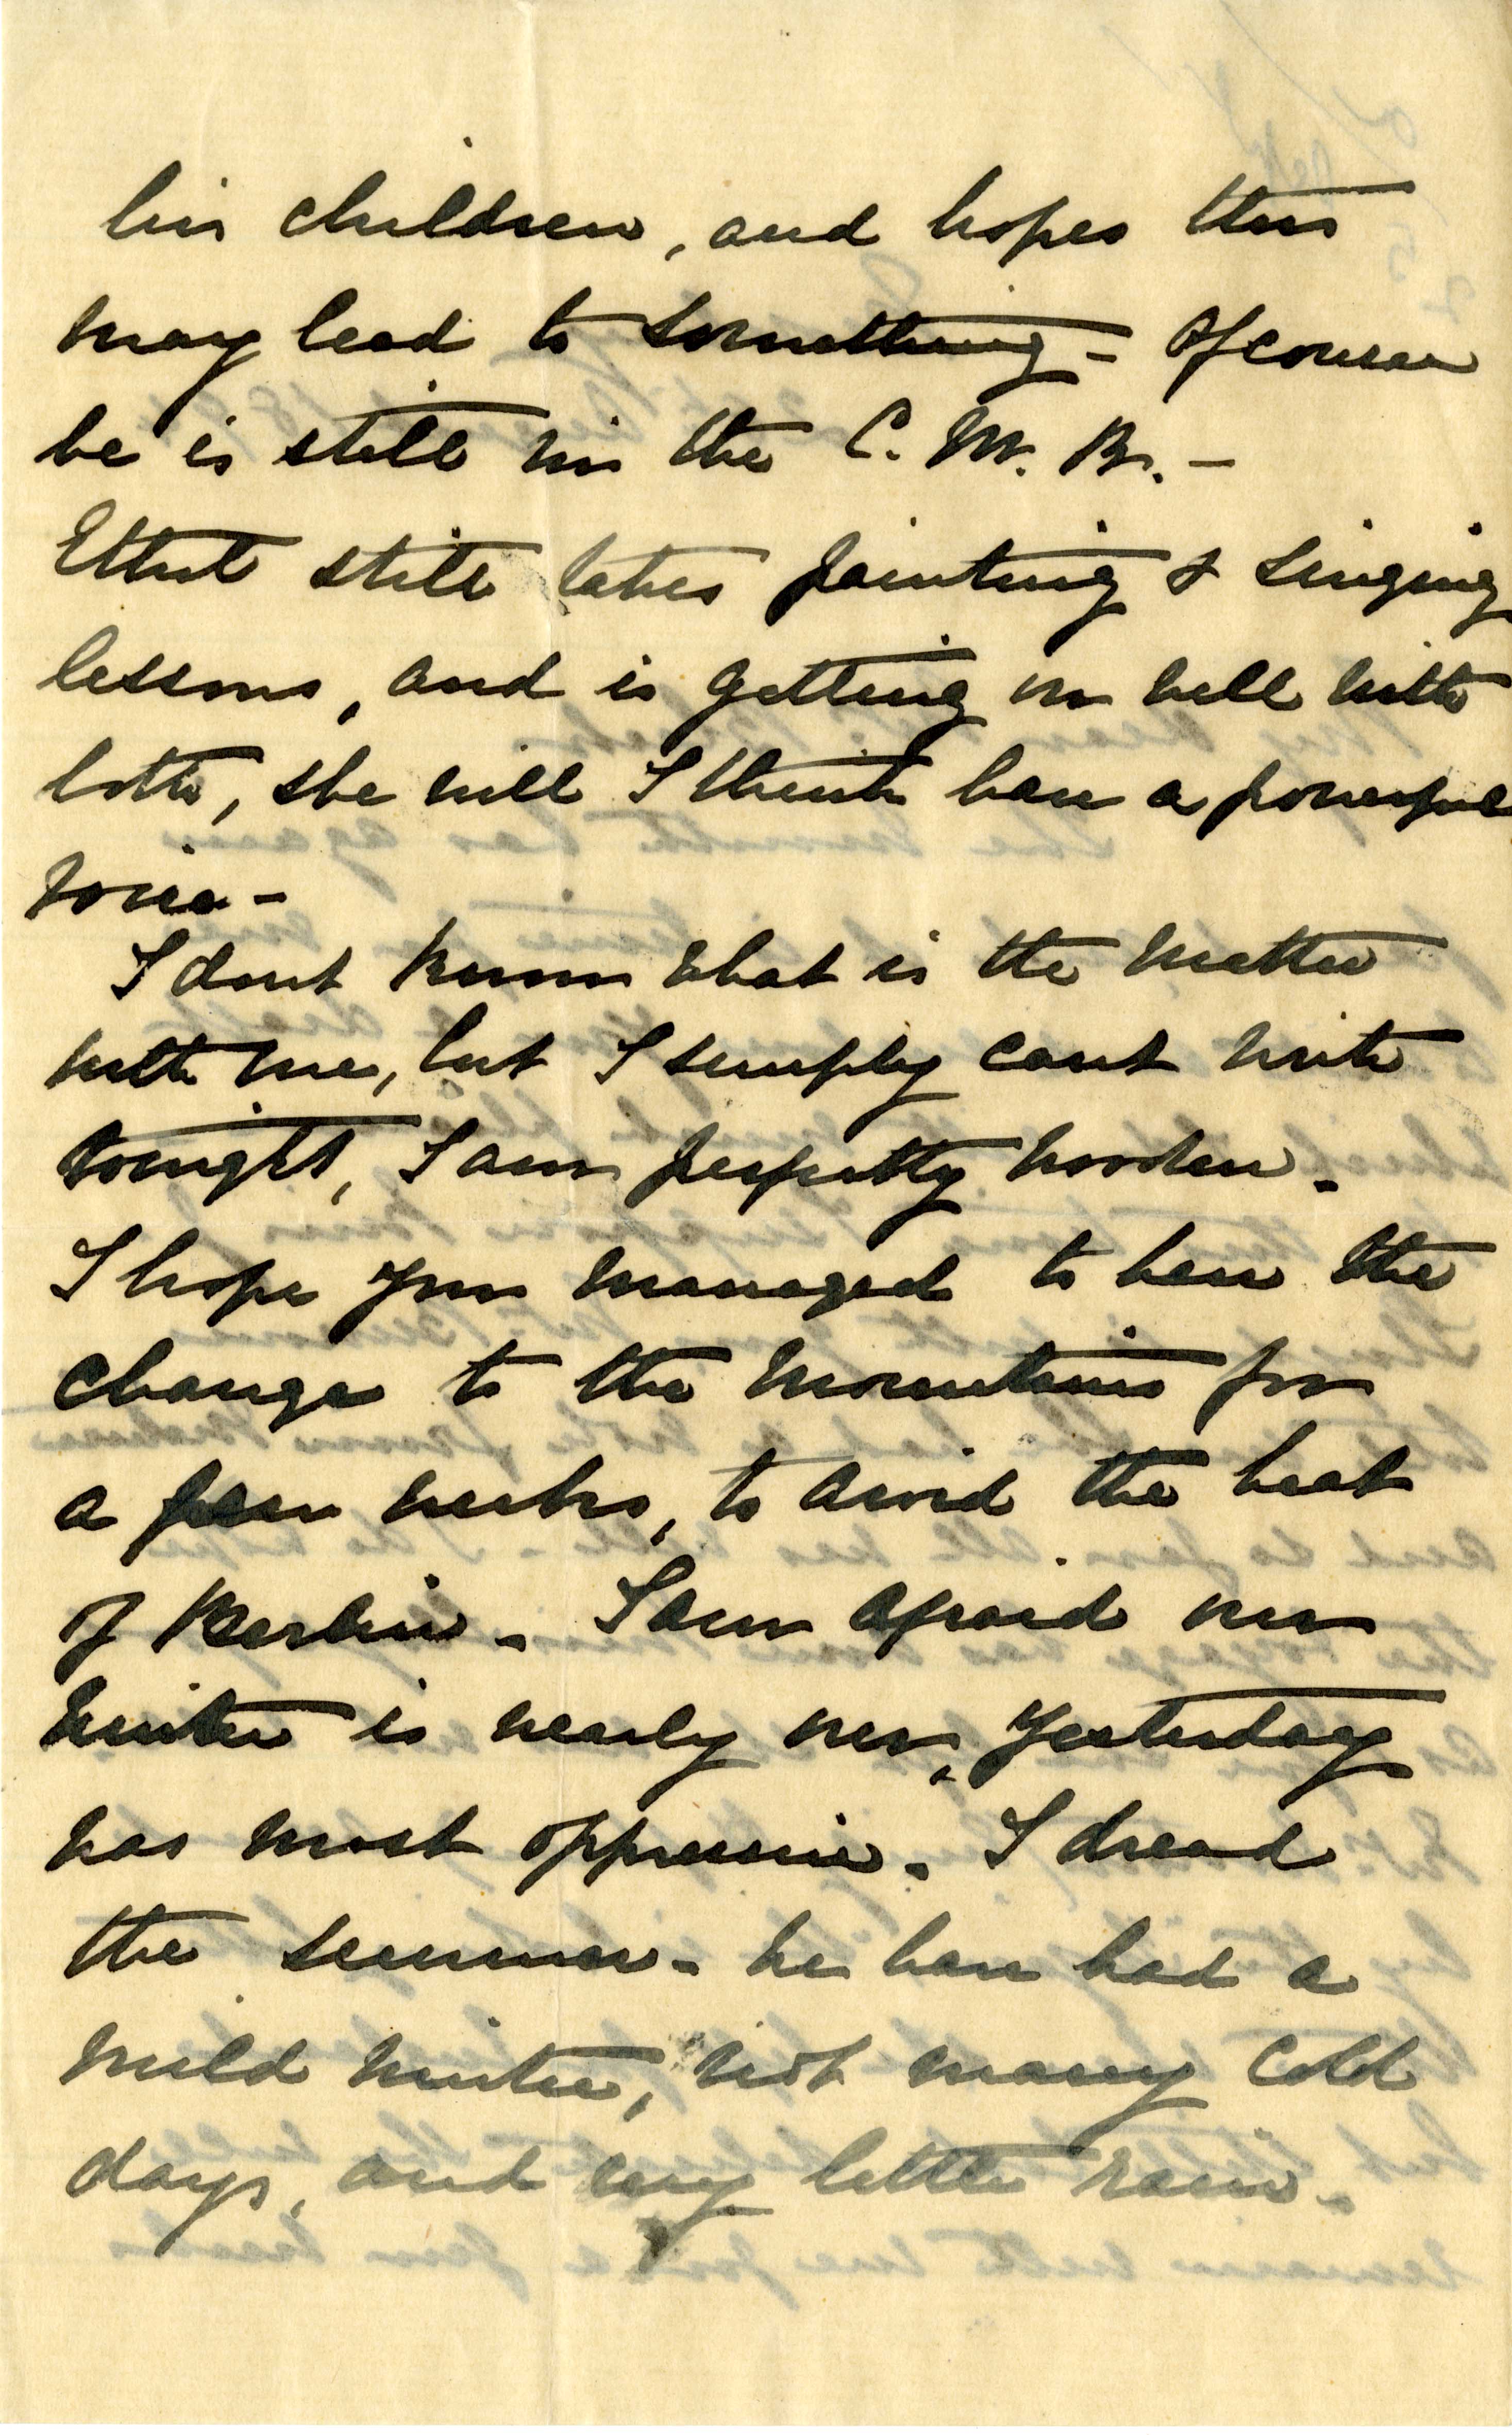 his children, and hopes this
may lead to something - Of course
he is still in the C. M. R. -
Ethel still takes painting & singing
lessons, and is getting on well with
both, she will I think have a powerful
voice -
I dont know what is the matter
with me, but I simply cant write
tonight, I am perfectly wooden -
I hope you managed to have the
change to the mountains for
a few weeks, to avoid the heat
of Berlin - I am afraid our
winter is nearly over, yesterday
was most oppressive - I dread
the summer - we have had a
mild winter, not many cold
days, and very little rain -